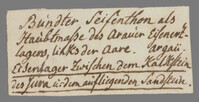 Bunster Seifenthon als
Hauptmasse des Arauer Eisenerz-
lagers, links der Aare. Argau.
Eisenlager zwischen dem Kalkstein
des Jura u. dem aufliegenden Sandstein.